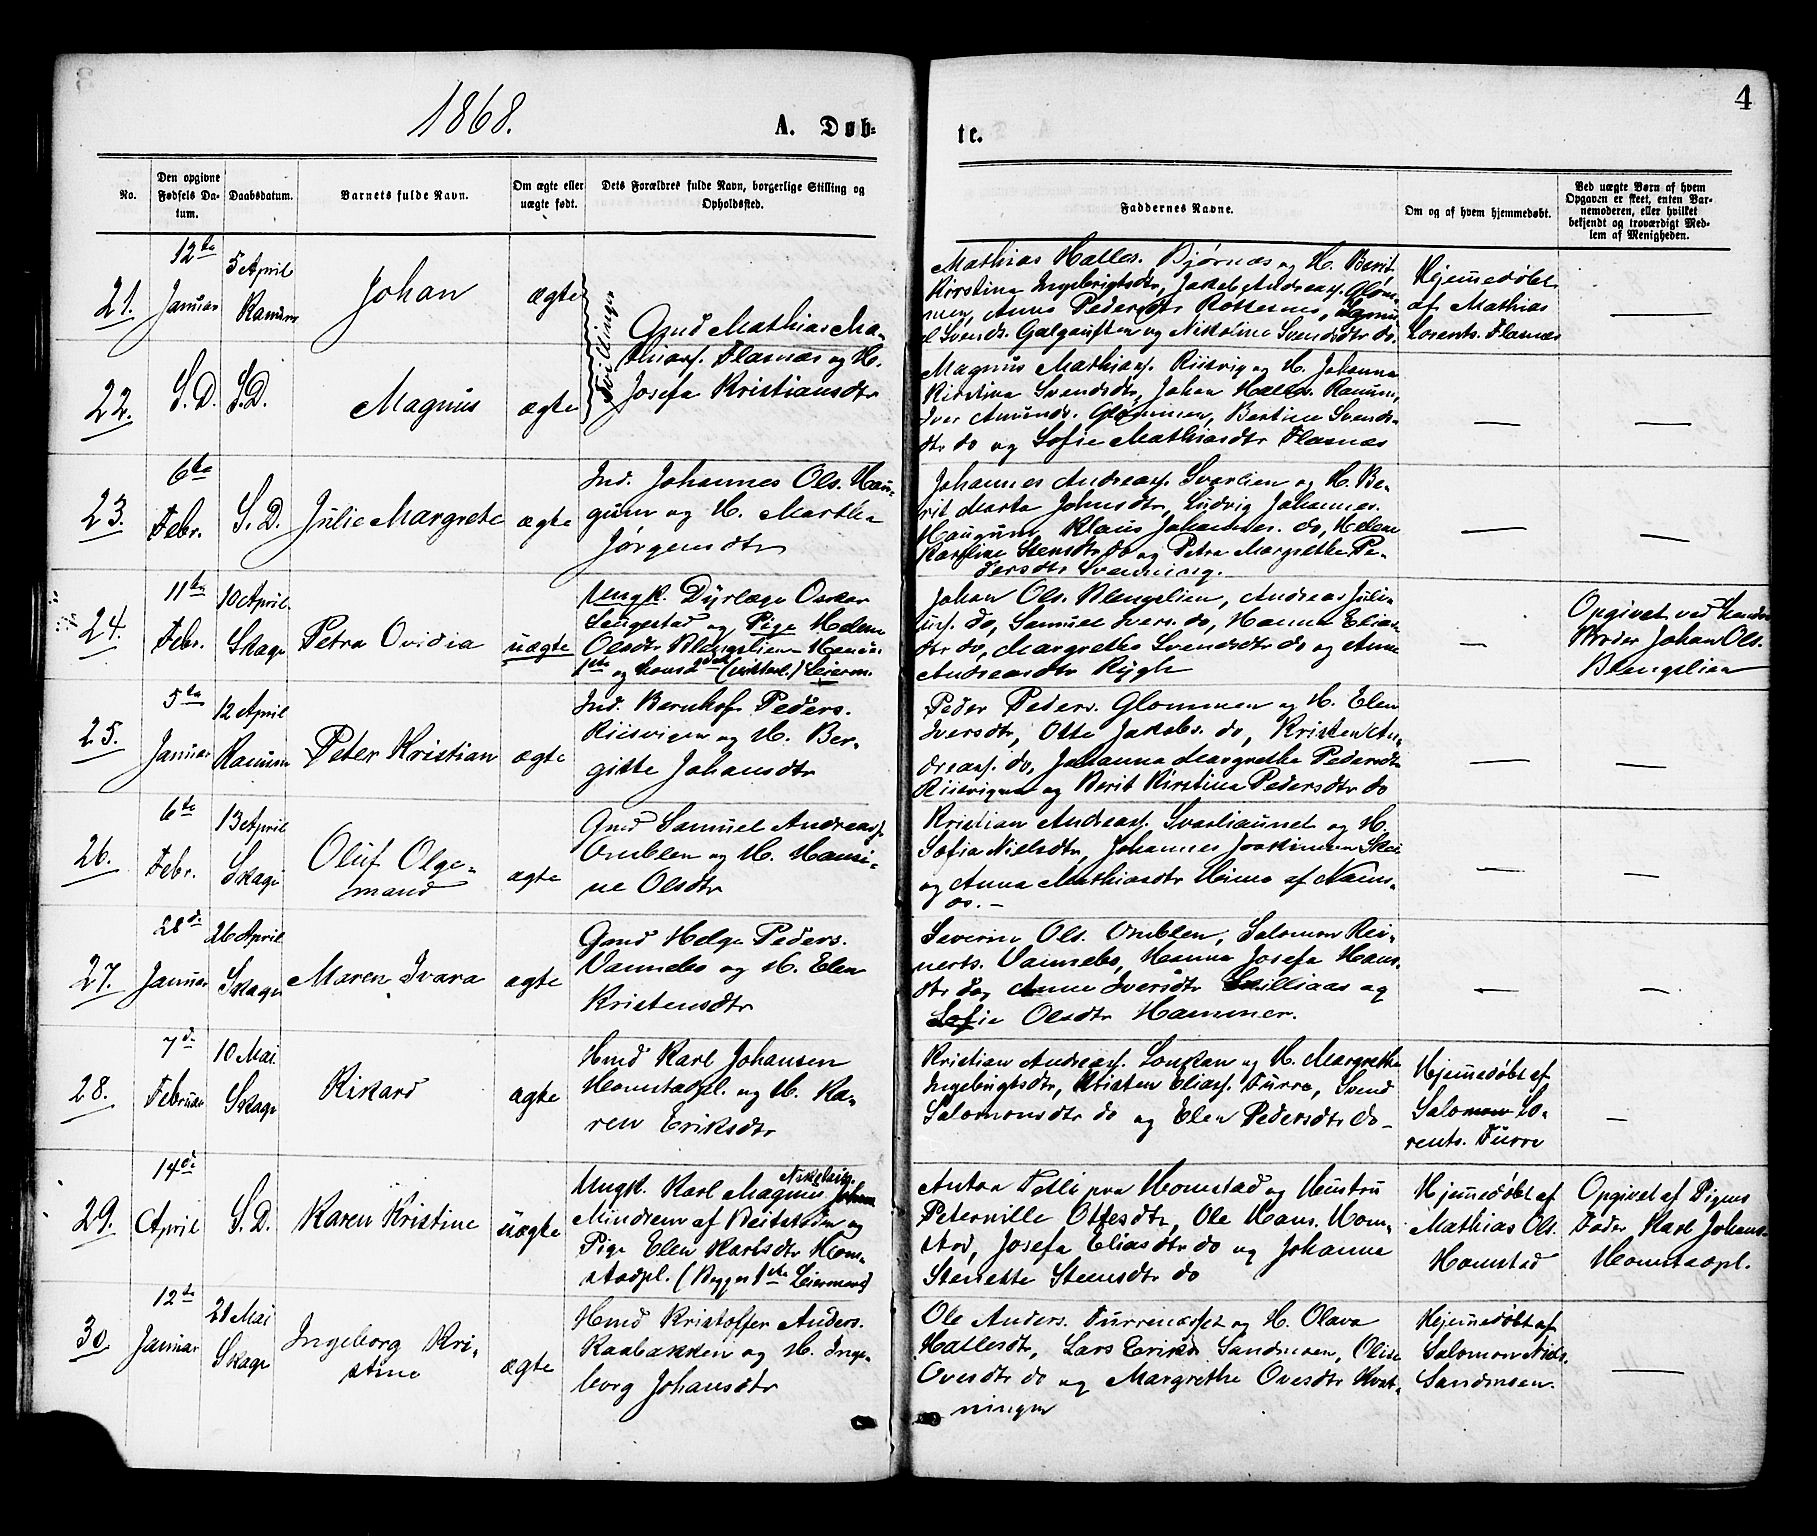 1868.
A. Døb-
te.
4
No.
Den opgivne
Fødsels Da-
tum.
Daabsdatum.
Barnets fulde Navn.
Om ægte eller
uægte født.
Dets Forældres fulde Navn, borgerlige Stilling og
Opholdssted.
Faddernes Navne.
Om og af hvem hjemmedøbt.
Ved uægte Børn af hvem
Opgaven er skeet, enten Bar-
nemoderen, eller hvilket
bekjendt og troværdigt Med-
lem af Menigheden.
21.
12te
Januar
5 April
Ranum
Johan
ægte
Tvillinger
Gmd Mathias Ma-
thiass. Flasnæs og H.
Josefa Kristiansdtr
Mathias Halles. Bjørnes og H. Berit
Kirstina Ingebrigtsdtr, Jakob Andreass. Glom-
men, Anne Pedersdtr Rottesnes,
Svends. Galguften og Nikoline Svendsdtr do.
Hjemmedøbt
af Mathias
Lorents. Flasnæs
—
22.
S.D.
S.D.
Magnus
ægte
Magnus Mathiass. Riisvig og H. Johanna
Kirstina Svendsdtr, Johan Halles. Ranum,
Iver Amunds. Glommen, Bertine Svends-
dtr do og Sofie Mathiasdtr Flasnæs
—
—
23.
6te
Febr.
S.D.
Julie Margrete
ægte
Ind. Johannes Ols. Hau-
gum og H. Martha
Jørgensdtr
Johannes Andreass. Svarlien og H. Be-
rit Marta Johnsdtr, Ludvig Johannes.
Haugum, Klaus Johannes. do, Helene
Karoline Stensdtr do og Petra Margrethe Pe-
dersdtr Svenning.
—
—
24.
11te
Febr.
10 April
Skage
Petra Ovidia
uægte
Ungk. Dyrlæge Oskar
Saugestad og Pige Helene
Olsdtr Blengslien Hendes
1ste og hans 2det Leierm.
Johan Ols. Blengslien, Andreas Juli-
us. do, Samuel Ivers. do, Hanna Elias-
dtr do, Margrethe Svendsdtr do og Anne
Andreasdtr Rygh
—
Opgivet ved hendes
Broder Johan Ols.
Blengslien
25.
5te
Januar
12 April
Ranum
Peter Kristian
ægte
Ind. Bernhof Peders.
Riisvigen og H. Ber-
gitte Johansdtr
Peder Peders. Glommen og H. Elen
Iversdtr, Otte Jakobs. do, Kristen An-
dreass. do, Johanna Margrethe Pedersdtr
Riisvigen og Berit Kirstina Pedersdtr do
—
—
26.
6te
Febr.
13 April
Skage
Oluf Olge-
mand
ægte
Gmd Samuel Andreass.
Omblen og H. Hansi-
ne Olsdtr
Kristian Andreass. Svarliaunet og H.
Sofia Nielsdtr, Johannes Joakimsen Skei
og Anna Mathiasdtr Heimo af Nams-
os. —
—
—
27.
28de
Januar
26 April
Skage
Maren Ivara
ægte
Gmd Helge Peders.
Vannebo og H. Elen
Kristensdtr
Severin Ols. Omblen, Salomon Rei-
nerts. Vannebo, Hanna Josefa Hans-
dtr do, Anne Iversdtr Lilliaas og
Sofie Olsdtr Hammer.
—
—
28.
7de
Februar
10 Mai
Skage
Rikard
ægte
Hmd Karl Johansen
Homstadpl. og H. Ka-
ren Eriksdtr
Kristian Andreass. Lonken og H. Margrethe
Ingebrigtsdtr, Kristen Eliass. Furre, Svend
Salomonsdtr do og Elen Pedersdtr do —
Hjemmedøbt af
Salomon Lo-
rents. Furre
—
29.
14de
April
S.D.
Karen Kristine
uægte
Ungk. Karl Magnus Nikolais. Johan
Mindrem af Beitstaden og
Pige Elen Karlsdtr Hom-
stadpl. (Begges 1ste Leiermaal)
Anton Homstad og Hustru
Peternille Ottesdtr, Ole Hans. Hom-
stad, Josefa Eliasdtr do og Johanna
Stenette Steensdtr do
Hjemmedøbt af
Mathias Ols.
Homstad
Opgivet af Pigens
Fader Karl Johans.
Homstadpl.
30
12te
Januar
21 Mai
Skage
Ingeborg Kri-
stine
ægte
Hmd Kristoffer Anders.
Raabakken og H. Inge-
borg Johansdtr
Ole Anders. Furrenæsset og H. Olava
Hallesdtr, Lars Eriks. Sandmoen, Oline
Ovesdtr do og Margrethe Ovesdtr Kvat-
ningen
Hjemmedøbt af
Salomon Niels.
Sandmoen.
—